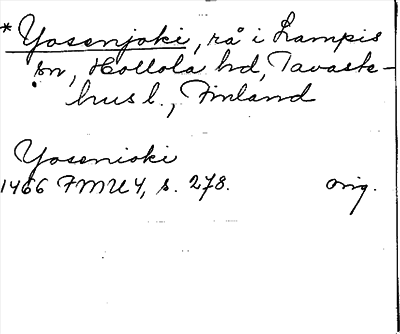 * Yosenjoki, rå i Lampis
sn, Hollola hd, Tavaste-
hus l., Finland
Yosenioki
1466 FMU 4, s. 278. orig.